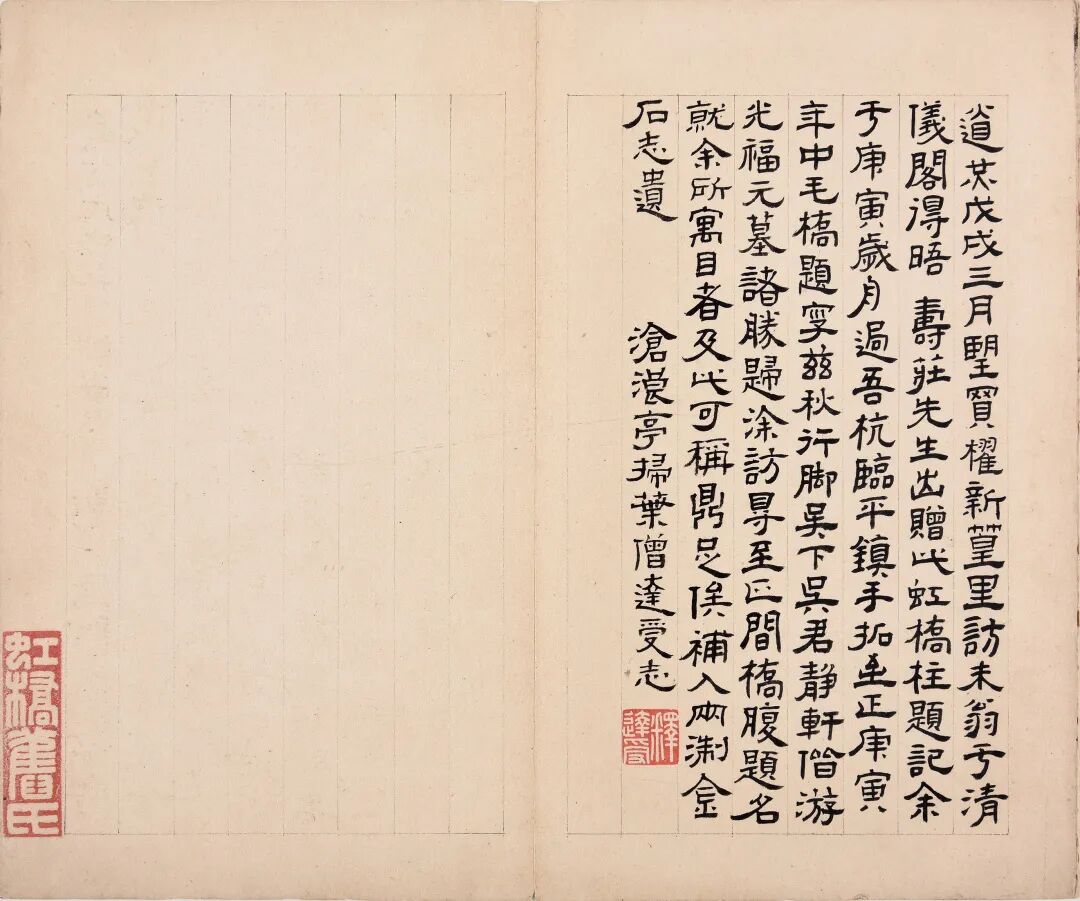 道光戊戌三月朢買櫂新篁里訪未翁于清
儀閣得晤 壽莊先生出贈此虹橋柱題記余
于庚寅歲舟過吾杭臨平鎮手拓至正庚寅
年中毛橋題字兹秋行脚吳下吳君靜軒偕游
光福元墓諸勝歸涂訪尋至間橋腹題名
就余所寓目者及此可稱鼎足俟補入兩淛金
石志遺 滄浪亭掃葉僧達受志
釋達受
虹橋舊氏